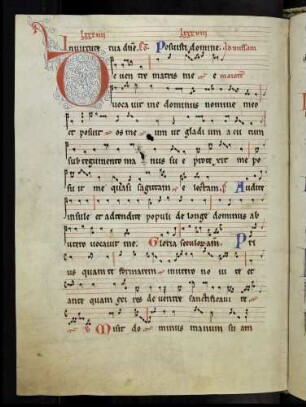 lxxxvii lxxxviii
In virtute tua dñe. Posuisti domine.
De ven tre matris me e
uoca uit me dominus nomine meo
et posuit os me um ut gladi um a cu tum
sub tegumento ma nus sue prote xit me po
su it me quasi sagittam e lectam. Audite
insule et adtendite populi de longe dominus ab
utero uocauit me. Gloria seculorum. Pri
us quam te formarem in utero no ui te et
ante quam exi res de uentre sanctificaui te
Misit do minus manum su am